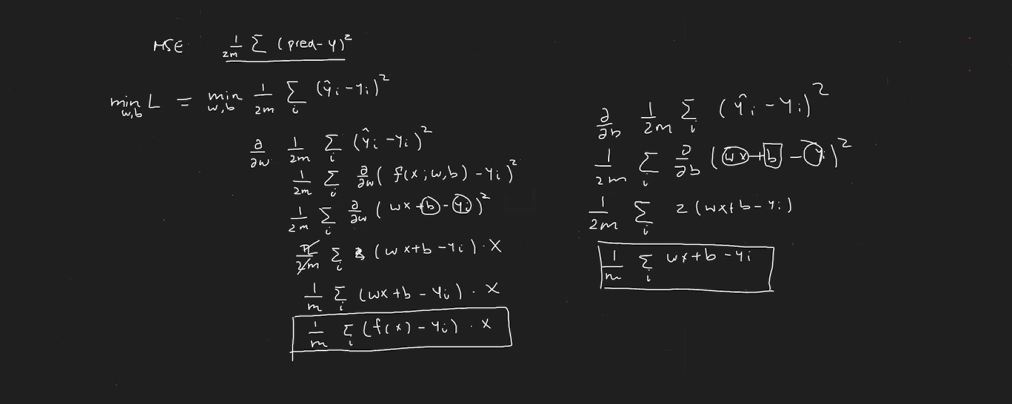 MSE 1/2m Σ (pred - y)²
min_{w,b} L = min_{w,b} 1/2m Σ_i (ŷ_i - y_i)²
∂/∂w 1/2m Σ_i (ŷ_i - y_i)²
1/2m Σ_i ∂/∂w (f(x; w, b) - y_i)²
1/2m Σ_i ∂/∂w (wx + b - y_i)²
2/2m Σ_i (wx + b - y_i) · x
1/m Σ_i (wx + b - y_i) · x
1/m Σ_i (f(x) - y_i) · x
∂/∂b 1/2m Σ_i (ŷ_i - y_i)²
1/2m Σ_i ∂/∂b (wx + b - y_i)²
1/2m Σ_i 2 (wx + b - y_i)
1/m Σ_i wx + b - y_i